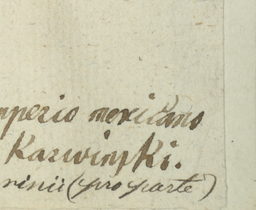 mperio mexicano
Karwinski.
ninii (pro parte)